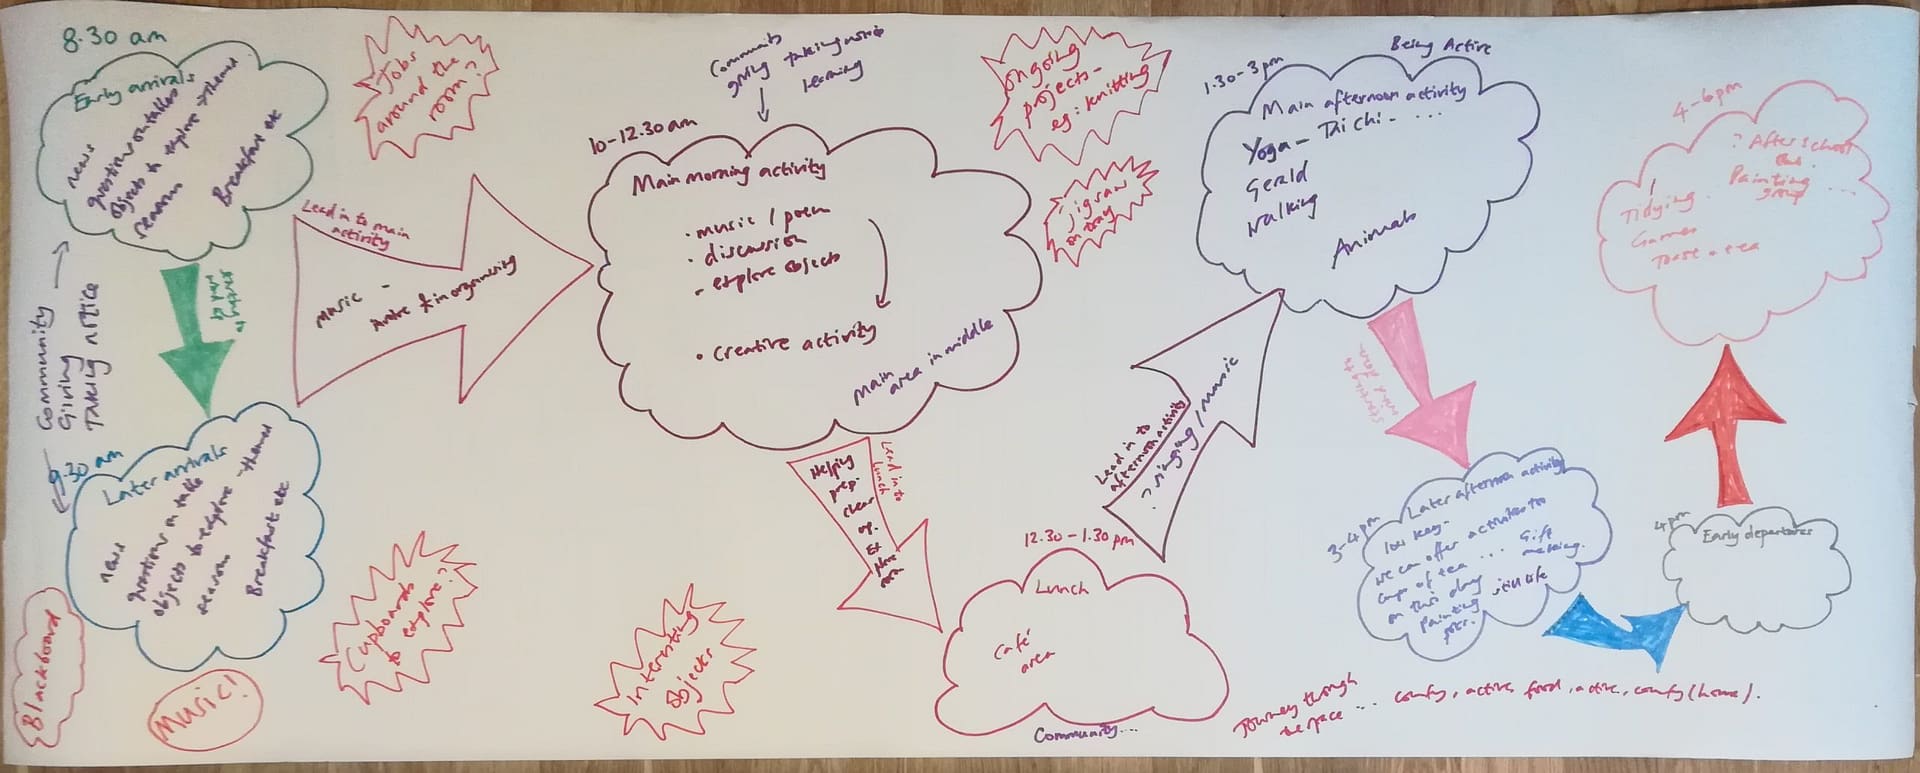 8.30 am
Early arrivals
news
questions on tables
objects to explore - themed
season
Breakfast etc
Jobs
around the
room?
Community
giving taking notice
learning
ongoing
projects -
eg: knitting
jigsaw
on tray
Lead in to main
activity
music -
10-12.30 am
Main morning activity
• music / poem
• discussion
- explore objects
• Creative activity
Main
area in middle
Being Active
1.30-3pm
Main afternoon activity
Yoga - Tai chi - ...
Gerald
walking
Animals
4-6pm
? After school
Painting ...
group
Tidying
Games
Toast + tea
Community
Giving
Taking notice
9.30 am
Later arrivals
news
questions on table
objects to explore - themed
season
Breakfast etc
Blackboard
Music!
Cupboards
to explore?
Interesting
objects
Helping
prep.
clear
up.
Lead in to
Lunch
12.30-1.30pm
Lunch
Café
area
Community...
Lead in to
afternoon activity
? singing / music
starting to
wind down
3-4pm
Later afternoon activity
low key -
we can offer activities to
cups of tea ... Gift
making.
on this day
still life
painting
4pm
Early departures
Journey through
the space ... comfy, active, food, active, comfy (home).